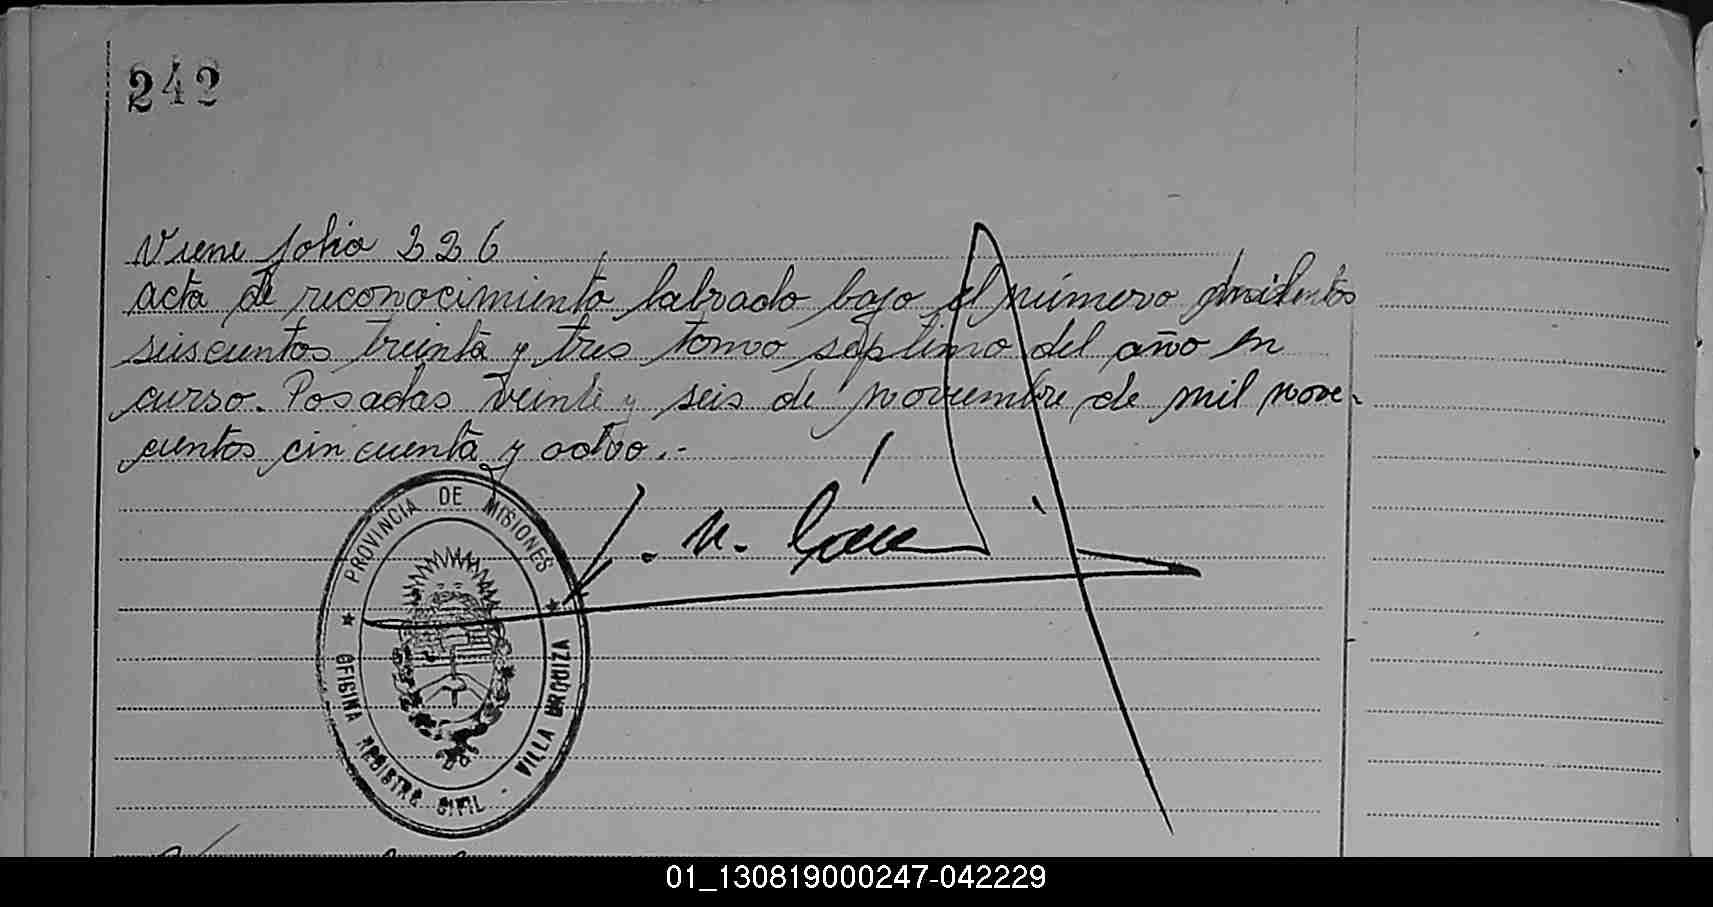 242
Viene folio 226
acta de reconocimiento labrado bajo el número
seiscientos treinta y tres tomo séptimo del año en
curso. Posadas veinte y seis de noviembre de mil nove-
cientos cincuenta y ocho.-
PROVINCIA DE MISIONES
OFICINA REGISTRO CIVIL - VILLA URQUIZA
01_130819000247-042229